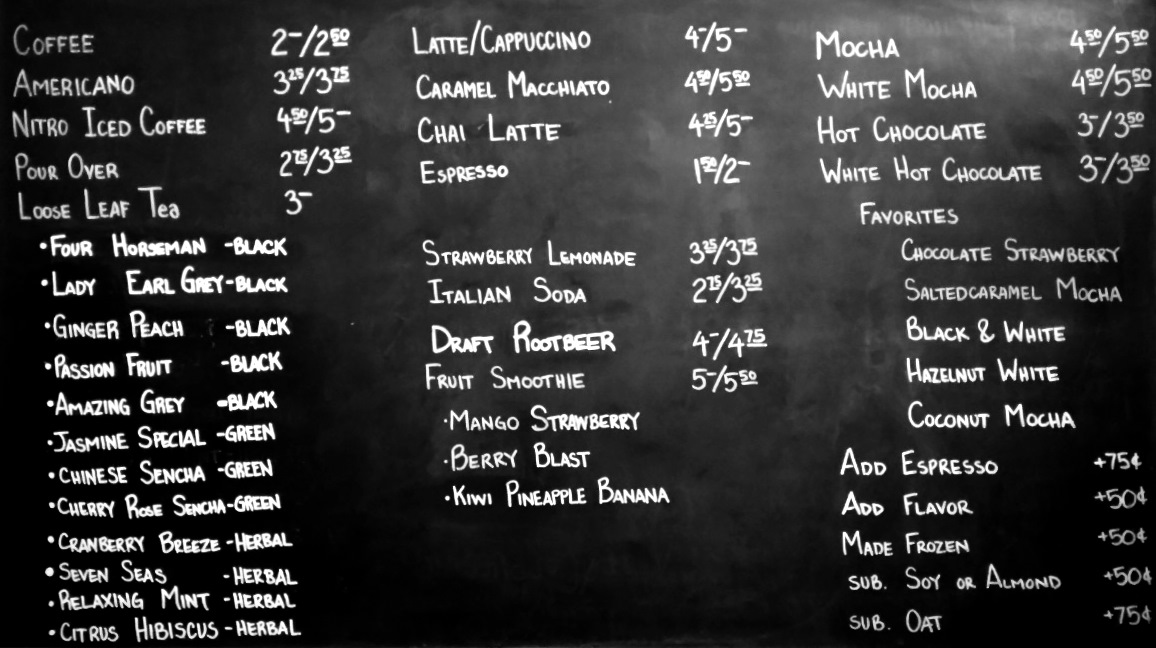 COFFEE 2-/250
AMERICANO 325/375
NITRO ICED COFFEE 450/5-
POUR OVER 275/325
LOOSE LEAF Tea 3-
•FOUR HORSEMAN -BLACK
•LADY EARL GREY-BLACK
•GINGER PEACH -BLACK
•PASSION FRUIT -BLACK
•AMAZING GREY -BLACK
•JASMINE SPECIAL -GREEN
•CHINESE SENCHA -GREEN
•CHERRY ROSE SENCHA-GREEN
•CRANBERRY BREEZE -HERBAL
•SEVEN SEAS -HERBAL
•RELAXING MINT -HERBAL
•CITRUS HIBISCUS -HERBAL
LATTE/CAPPUCCINO 4-/5-
CARAMEL MACCHIATO 450/550
CHAI LATTE 425/5-
ESPRESSO 150/2-
STRAWBERRY LEMONADE 325/375
ITALIAN SODA 275/325
DRAFT ROOTBEER 4-/475
FRUIT SMOOTHIE 5-/550
•MANGO STRAWBERRY
•BERRY BLAST
•KIWI PINEAPPLE BANANA
MOCHA 450/550
WHITE MOCHA 450/550
HOT CHOCOLATE 3-/350
WHITE HOT CHOCOLATE 3-/350
FAVORITES
CHOCOLATE STRAWBERRY
SALTEDCARAMEL MOCHA
BLACK & WHITE
HAZELNUT WHITE
COCONUT MOCHA
ADD ESPRESSO +75¢
ADD FLAVOR +50¢
MADE FROZEN +50¢
SUB. SOY OR ALMOND +50¢
SUB. OAT +75¢